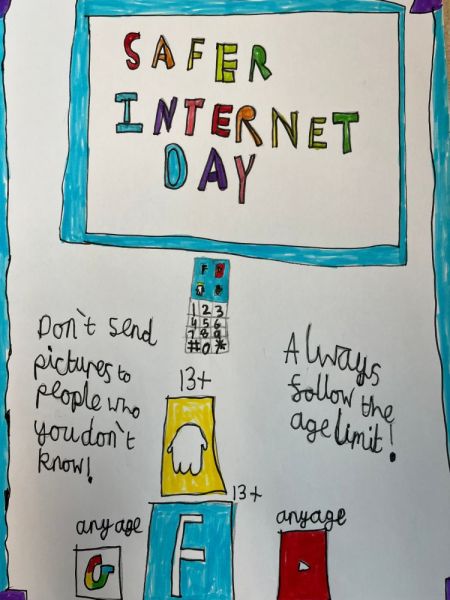 SAFER
INTERNET
DAY
F
1 2 3
4 5 6
7 8 9
# 0 *
Don't send
pictures to
people who
you don't
know!
Always
follow the
age limit!
13+
13+
any age
G
F
any age